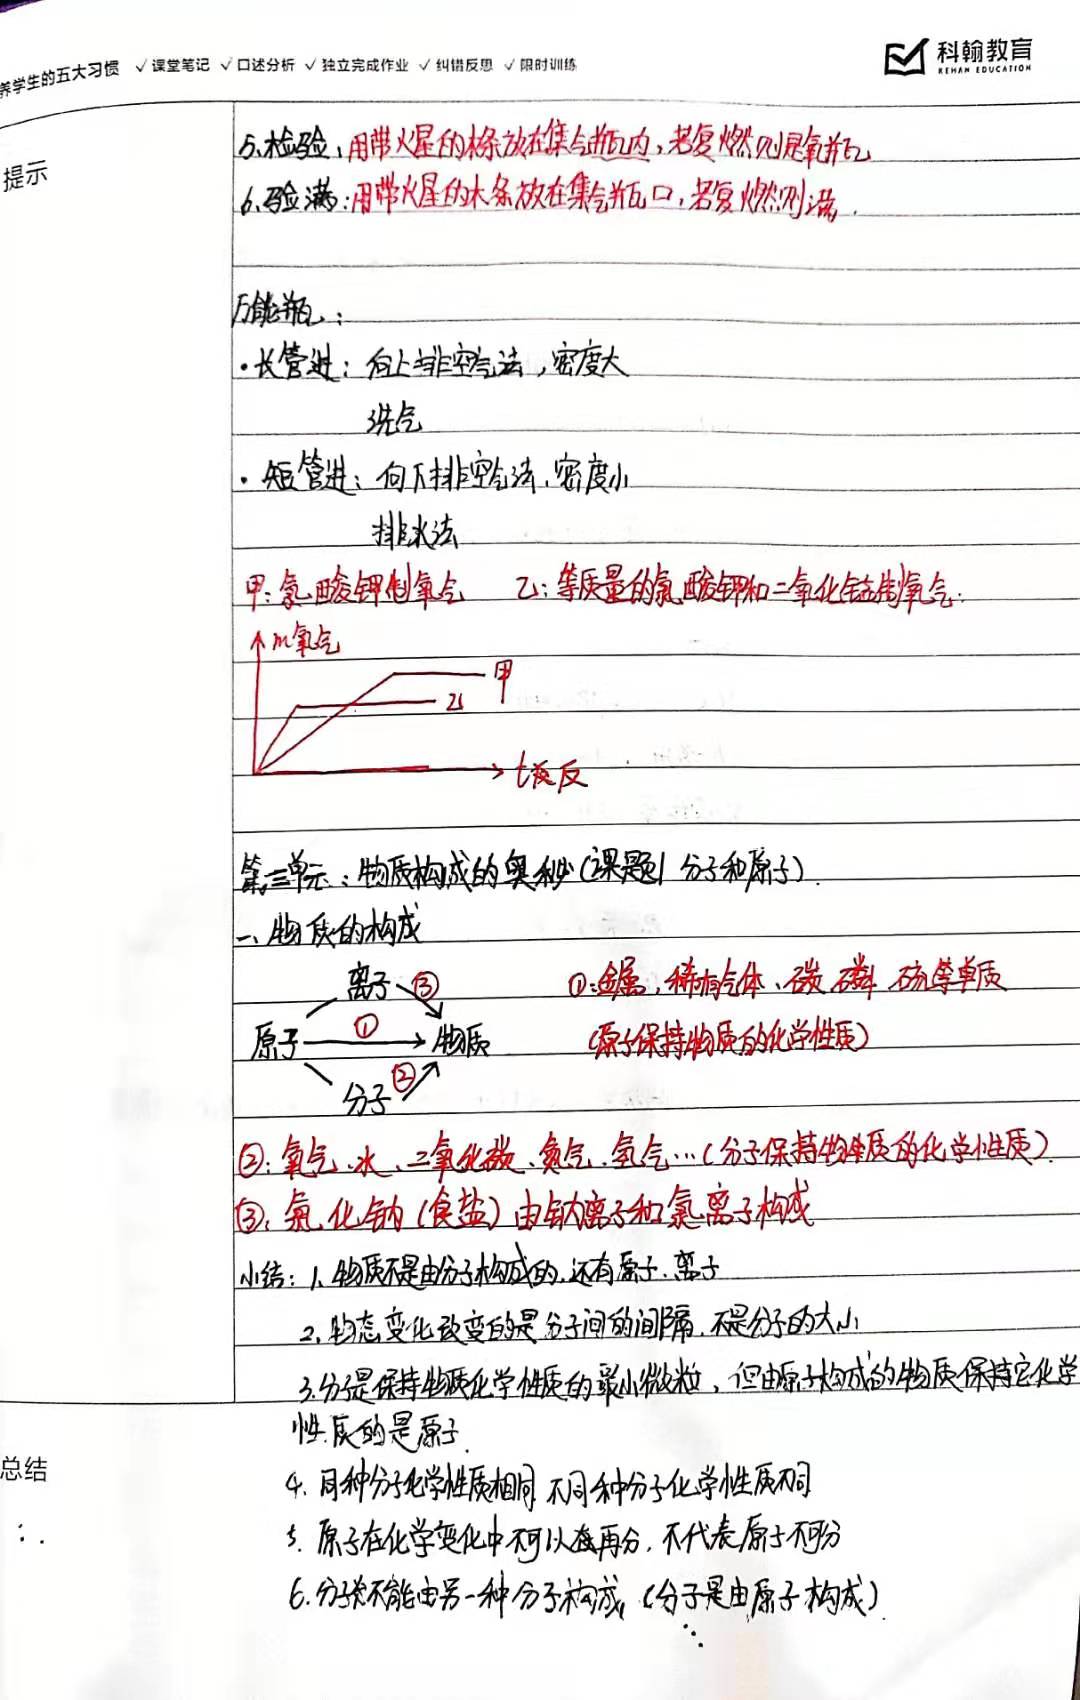 养学生的五大习惯 ✓课堂笔记 ✓口述分析 ✓独立完成作业 ✓纠错反思 ✓限时训练
科翰教育
KEHAN EDUCATION
提示
5.检验:用带火星的木条放在集气瓶内,若复燃则是氧气
6.验满:用带火星的木条放在集气瓶口,若复燃则满.
万能瓶:
·长管进:向上排空气法,密度大
洗气
·短管进:向下排空气法,密度小
排水法
甲:氯酸钾制氧气 乙:等质量的氯酸钾和二氧化锰制氧气.
m氧气
甲
乙
t反应
第三单元:物质构成的奥秘(课题1 分子和原子).
一、物质的构成
离子 ③ ①:金属,稀有气体、碳 磷 硫等单质
原子 ① 物质 (原子保持物质的化学性质)
分子 ②
②:氧气、水、二氧化碳、氮气、氢气…(分子保持物质的化学性质).
③:氯化钠(食盐)由钠离子和氯离子构成
小结:1.物质不是由分子构成的,还有原子.离子
2.物态变化改变的是分子间的间隔,不是分子的大小
3.分子是保持物质化学性质的最小微粒,但由原子构成的物质保持它化学
性质的是原子.
总结
4.同种分子化学性质相同 不同种分子化学性质不同
5.原子在化学变化中不可以再分,不代表原子不可分
6.分子不能由另一种分子构成,(分子是由原子构成).